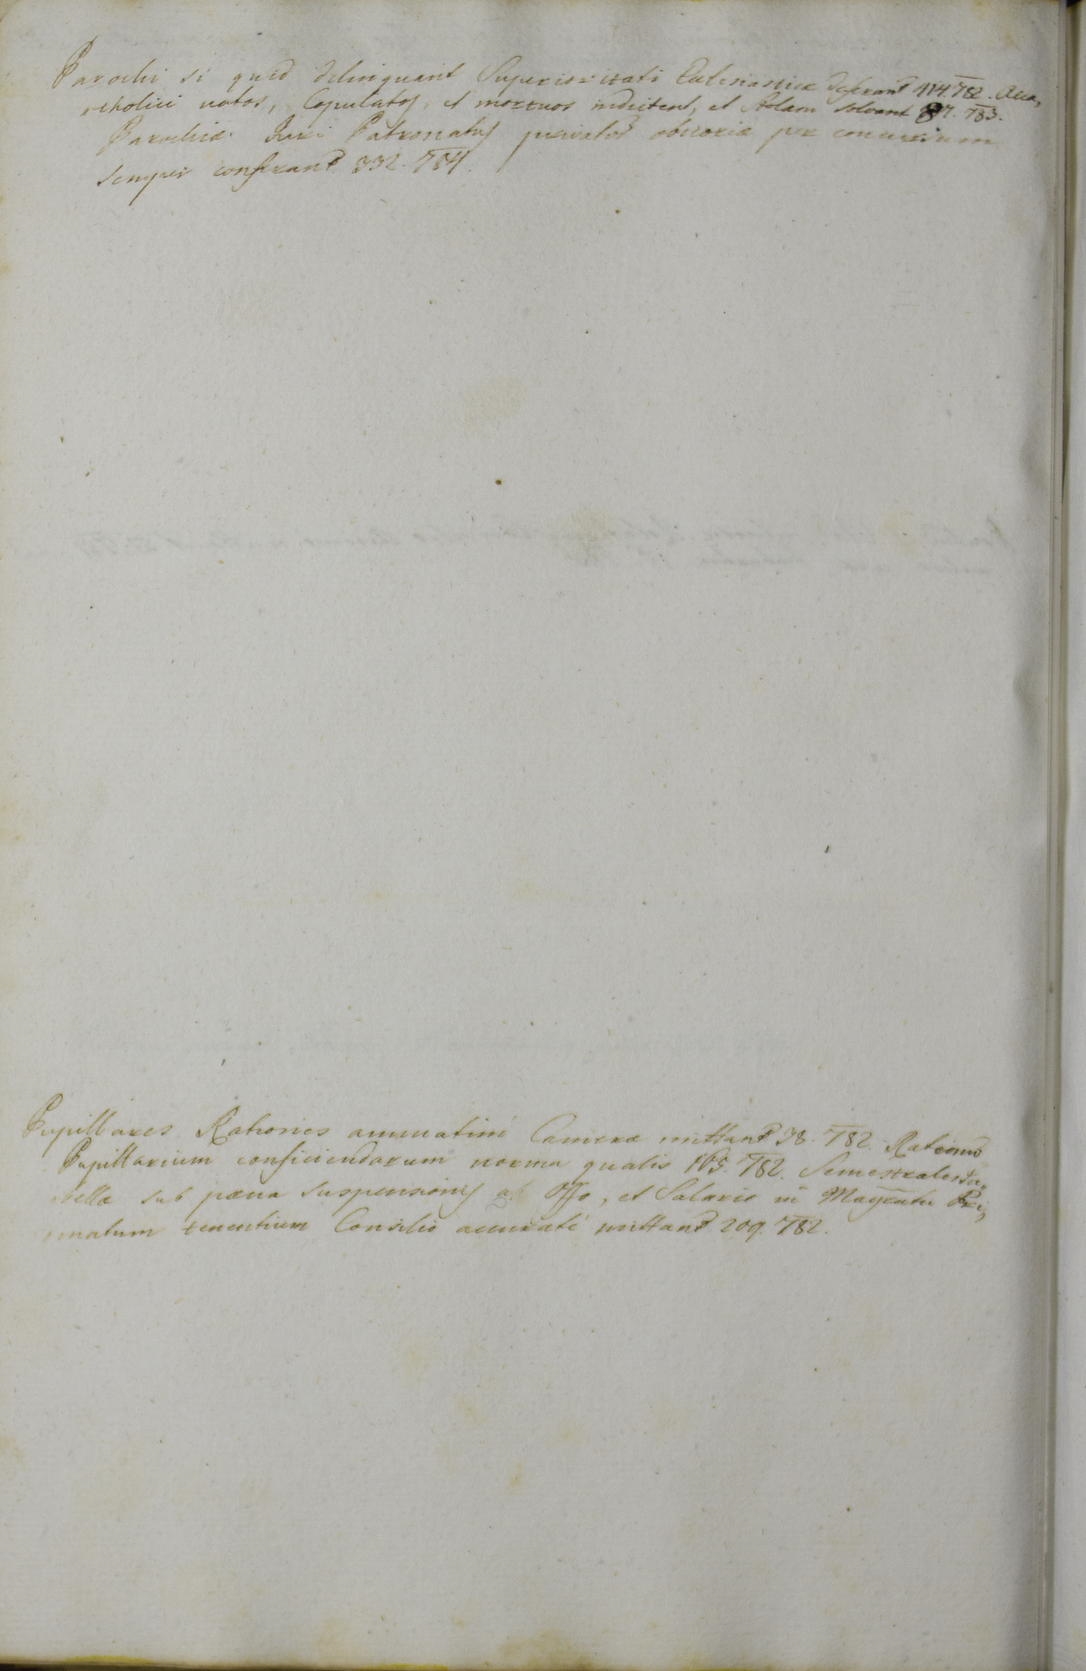 Parochi si quid delinquant Superioritati Eclesiasticæ deferant 414. 782. Aca,
tholici natos, Copulatos, et mortuos indicent, et Stolam solvant 817. 783.
Parochiæ Juri Patronatus privator obnoxiæ per concursum
semper conferant 332. 784.
Pupillares Rationes annuatim Cameræ mittant 38. 782. Rationum
Pupillarium conficiendarum norma qualis 165. 782. Semestrales Ta,
bellæ sub pæna suspensionis ab Offo, et Salario in Magratu Pri,
matum tenentium Consilio accuraté mittant 209. 782.